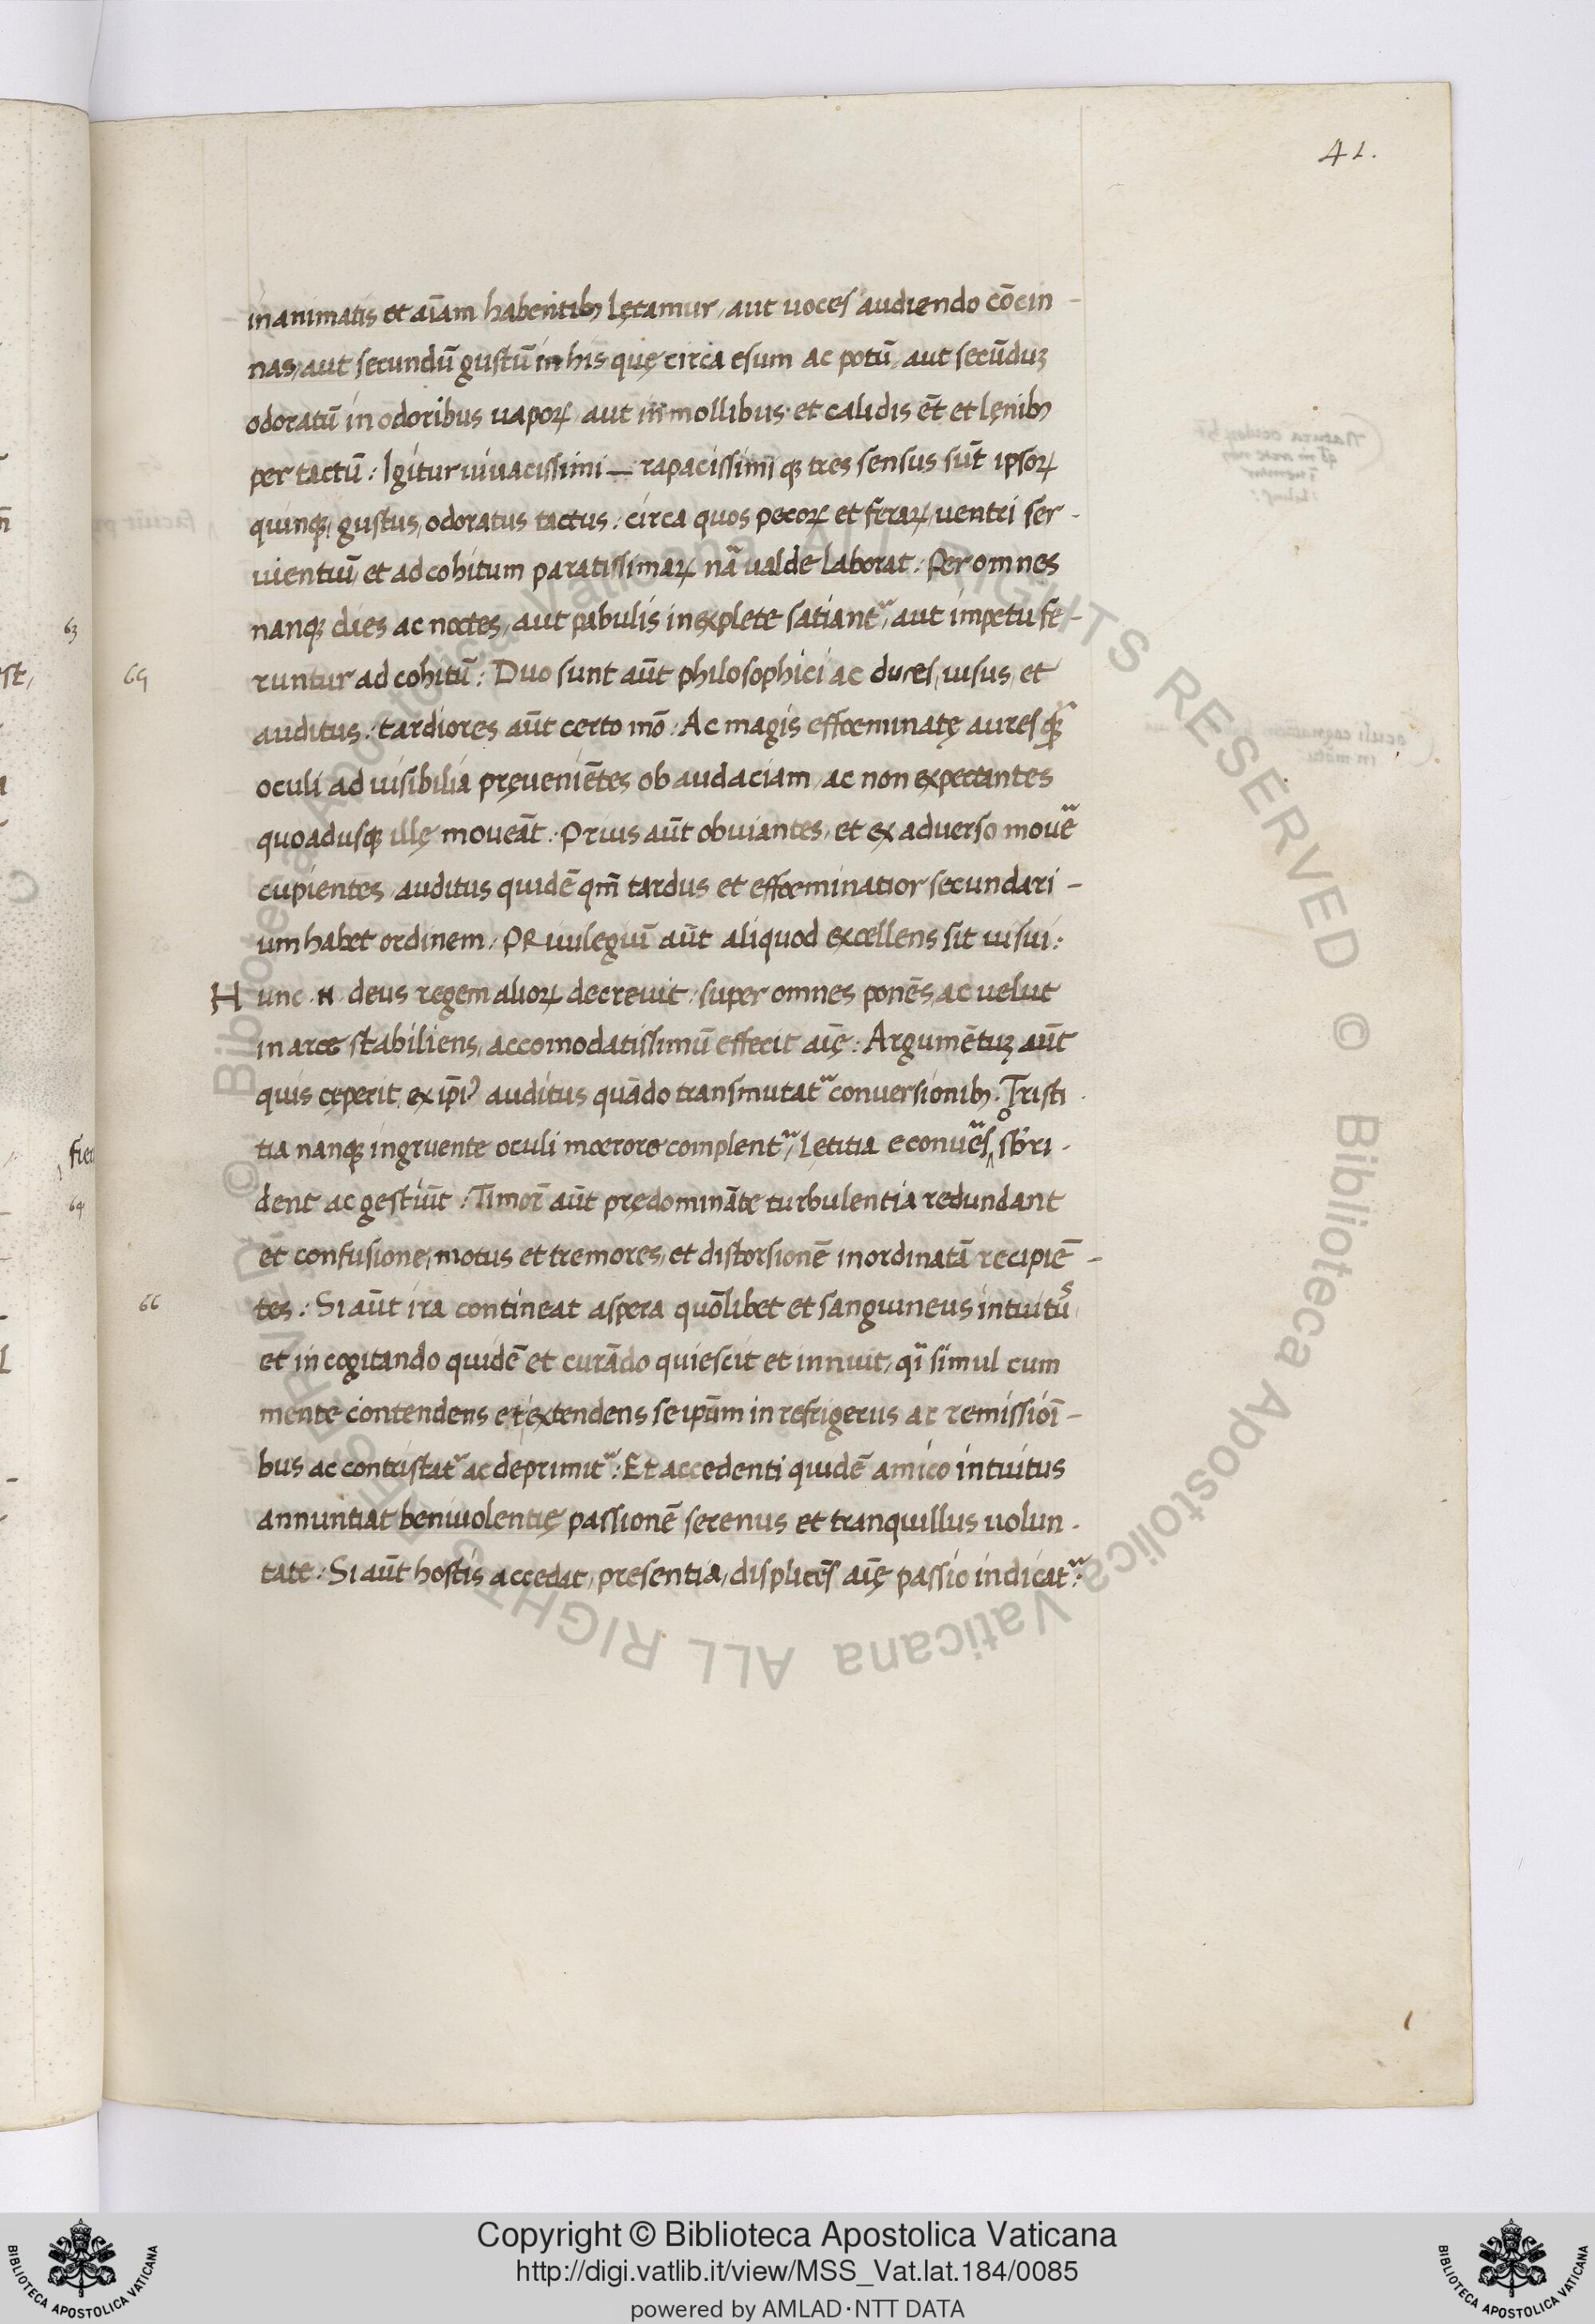 41.
inanimatis et aīam habentibꝫ lętamur, aut uoces audiendo cōcin-
nas, aut secundū gustū in his quę circa esum ac potū, aut secūduꝫ
odoratū in odoribus uaporꝝ, aut in mollibus et calidis ēt et lęnibꝫ
per tactū: Igitur uiuacissimi — rapacissimi qꝫ tres sensus sūt ipsoꝝ
quinqꝫ, gustus, odoratus tactus: circa quos pecorꝝ et ferarꝝ, uentri ser-
uientiū, et ad cohitum paratissimarꝝ nā ualde laborat: Per omnes
nanqꝫ dies ac noctes, aut pabulis inexplete satiant᷑, aut impetu fe-
65
runtur ad cohitū: Duo sunt aūt philosophici ac duces, uisus, et
auditus: tardiores aūt certo mō: Ac magis effoeminatę aures qꝫ̄
oculi ad uisibilia pręueniētes ob audaciam, ac non expectantes
quoadusqꝫ illę moueāt: Prius aūt obuiantes, et ex aduerso mouē
cupientes, auditus quidē qm̄ tardus et effoeminatior secundari-
um habet ordinem. PRiuilegiū aūt aliquod excellens sit uisui:
Hunc .N. deus regem aliorꝝ decreuit: super omnes ponēs, ac uelut
in arce stabiliens, accomodatissimū effecit aīę: Argumētuꝫ aūt
quis cęperit ex ip̄iꝰ auditus quādo transmutat᷑ conuersionibꝫ. Tristi-
tia nanqꝫ ingruente oculi moerore complent᷑, Lętitia e conuēs̊, sb̄ri-
dent ac gestiūt: Timor̄ aūt prędomināte turbulentia redundant
et confusione, motus et tremores, et distorsionē inordinatā recipiē-
66
tes: Si aūt ira contineat aspera quōlibet et sanguineus intuitus,
et in cogitando quidē et curādo quiescit et innuit, qī simul cum
mente contendens et extendens se ip̄um in refrigeriis ac remissioī-
bus ac contristat᷑ ac deprimit᷑: Et accedenti quidē amico intuitus
annuntiat beniuolentię passionē serenus et tranquillus uolun-
tate: Si aūt hostis accedat, presentia, displicēs aīę passio indicat᷑:
Copyright © Biblioteca Apostolica Vaticana
http://digi.vatlib.it/view/MSS_Vat.lat.184/0085
powered by AMLAD·NTT DATA